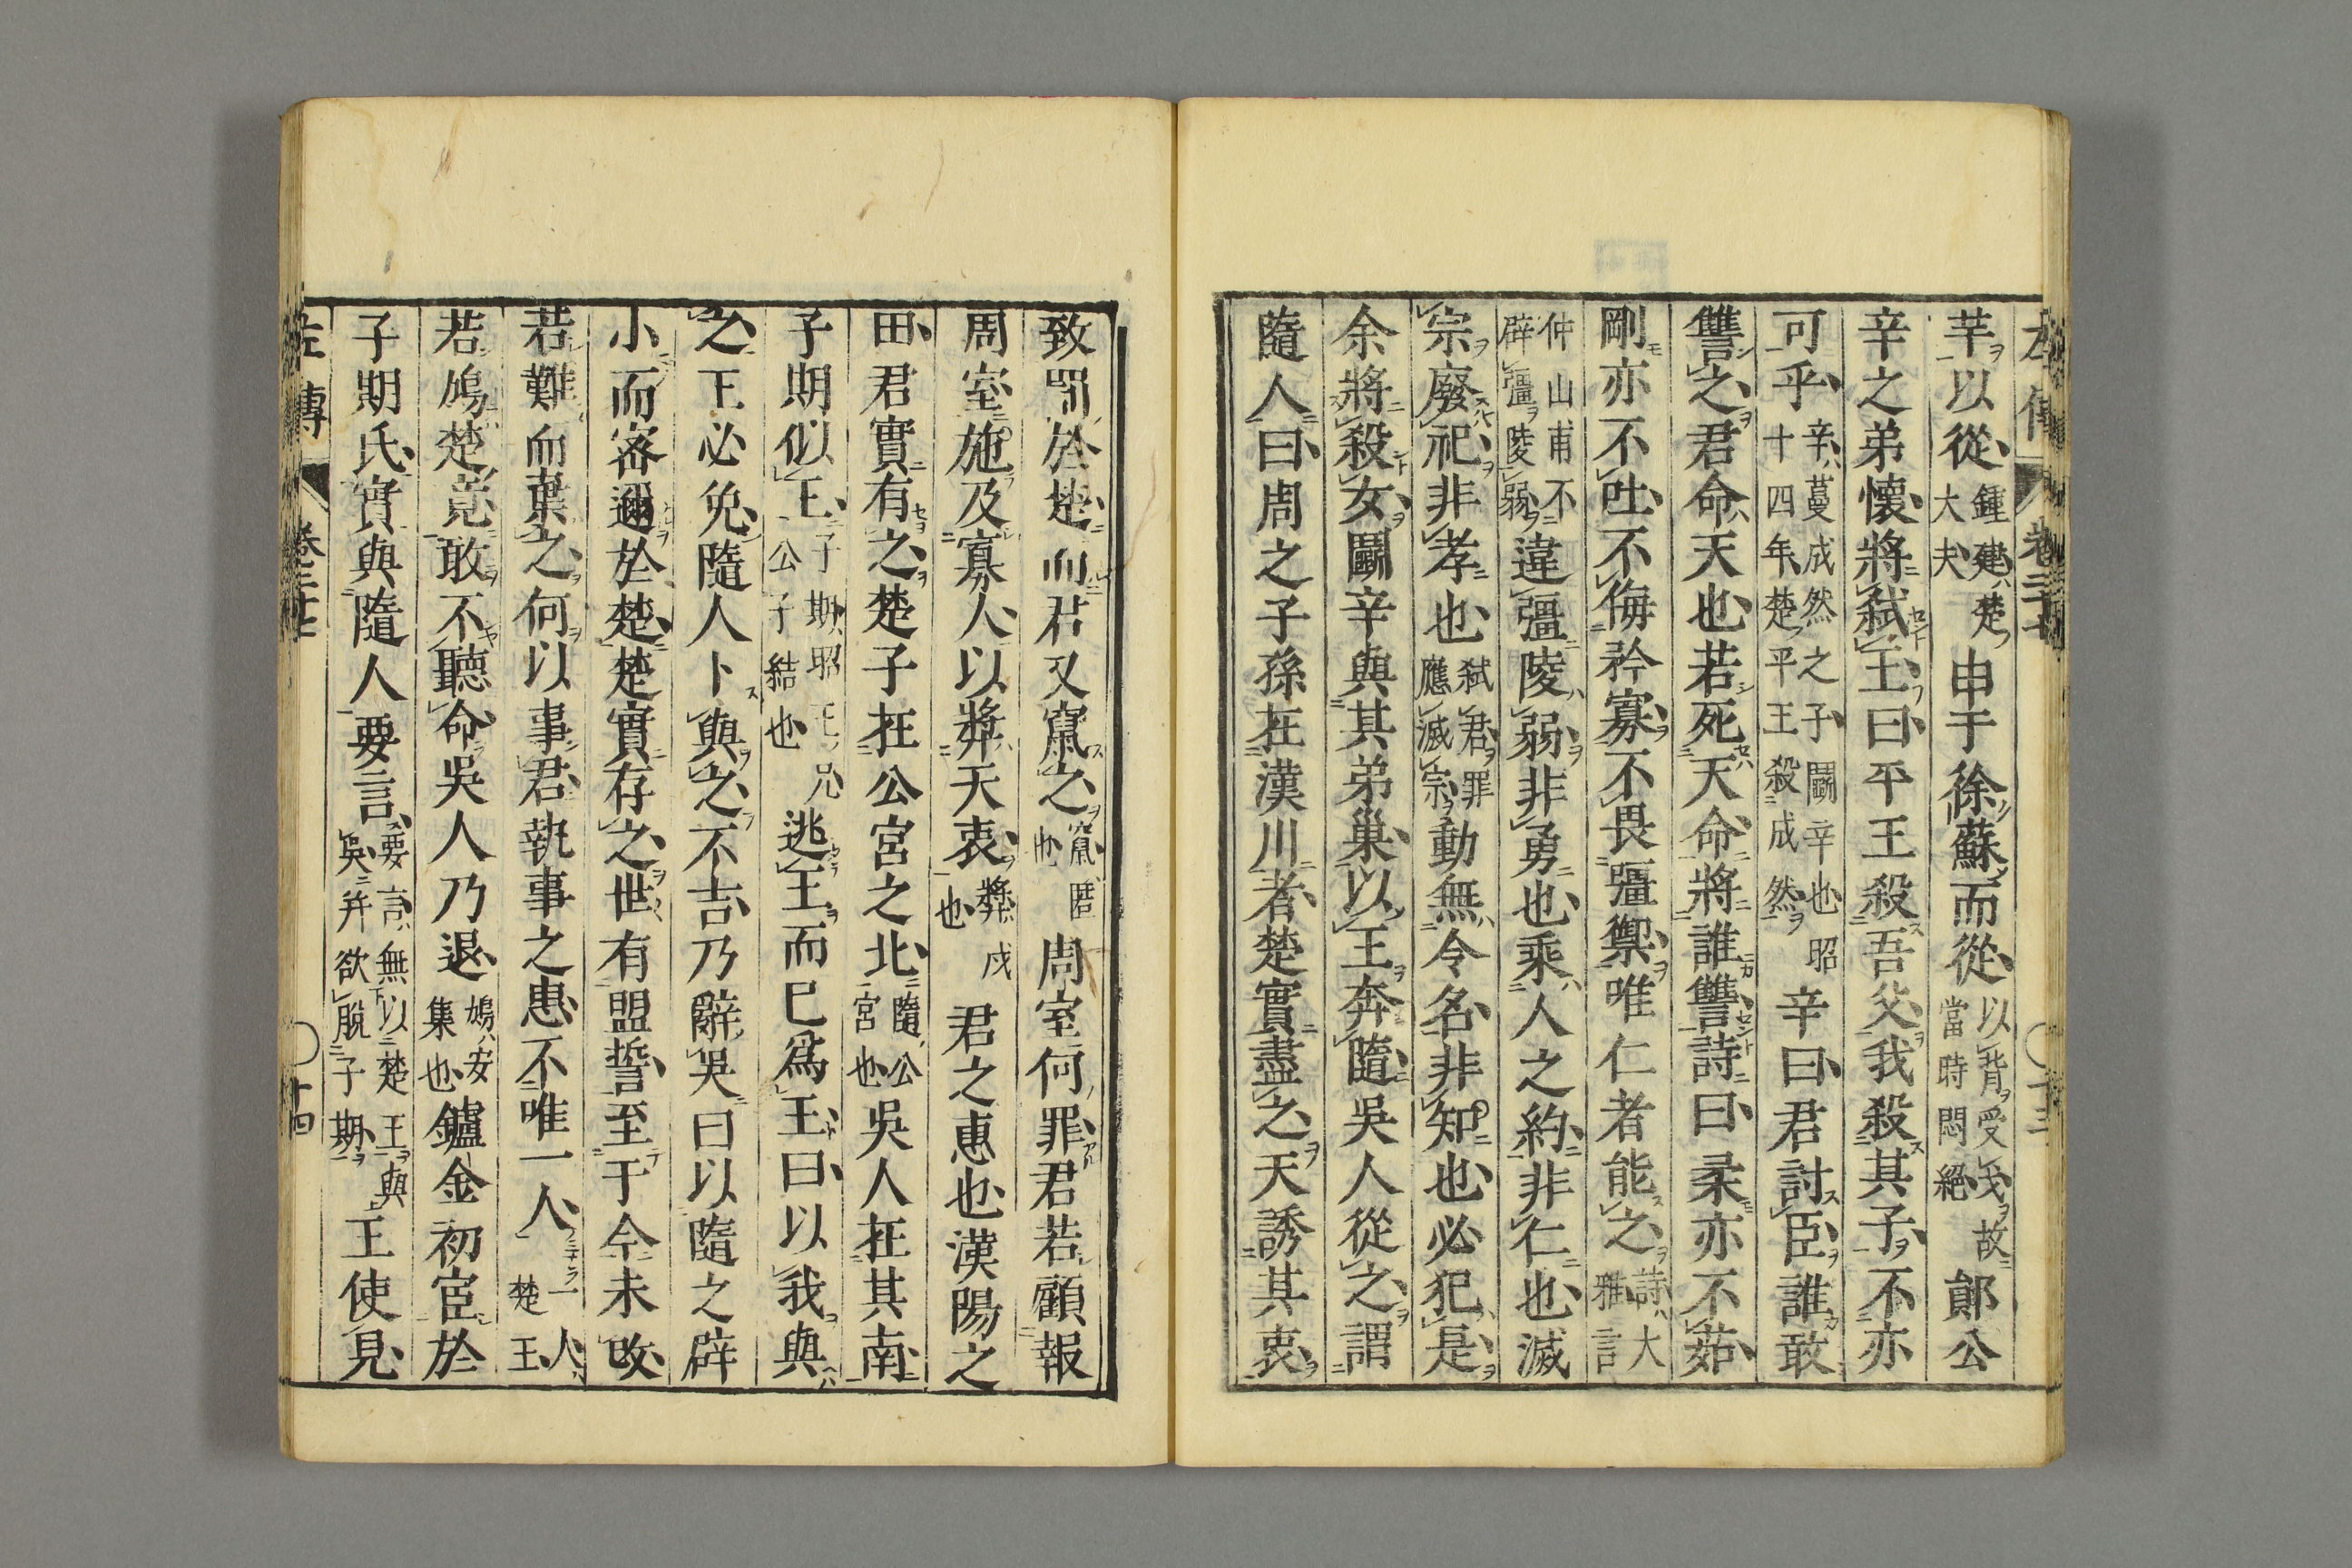 左傳 卷二十七 ○十三
芊以從鍾建楚大夫申于徐蘇而從以背受戈故當時悶絕鄖公
辛之弟懷將弒王曰平王殺吾父我殺其子不亦
可乎辛蔓成然之子鬭辛也昭十四年楚平王殺成然辛曰君討臣誰敢
讐之君命天也若死天命將誰讐詩曰柔亦不茹
剛亦不吐不侮矜寡不畏彊禦唯仁者能之詩大雅言
仲山甫不辟彊陵弱違彊陵弱非勇也乘人之約非仁也滅
宗廢祀非孝也弒君罪應滅宗動無令名非知也必犯是
余將殺女鬭辛與其弟巢以王奔隨吳人從之謂
隨人曰周之子孫在漢川者楚實盡之天誘其衷
致罰於楚而君又竄之竄匿也周室何罪君若顧報
周室施及寡人以奬天衷奬成也君之惠也漢陽之
田君實有之楚子在公宮之北隨公宮也吳人在其南
子期似王子期昭王兄公子結也逃王而已爲王曰以我與
之王必免隨人卜與之不吉乃辭吳曰以隨之辟
小而密邇於楚楚實存之世有盟誓至于今未改
若難而棄之何以事君執事之患不唯一人一人楚王
若鳩楚竟敢不聽命吳人乃退鳩安集也鑪金初宦於
子期氏實與隨人要言要言無以楚王與吳并欲脫子期王使見
左傳 卷二十七 ○十四